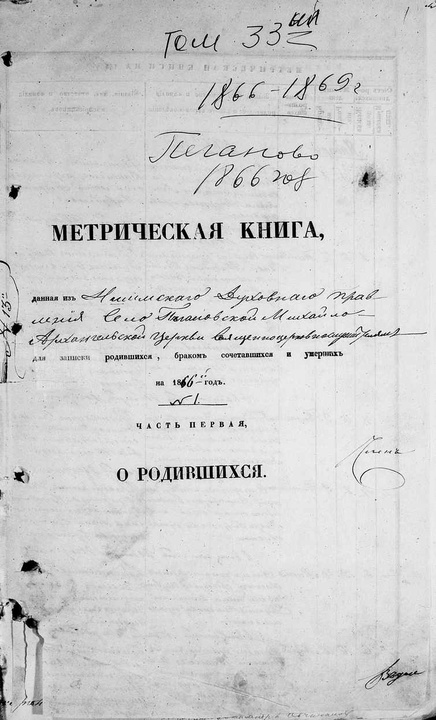 Том 33ый
1866-1869 г
Пеганово
1866 год
МЕТРИЧЕСКАЯ КНИГА,
данная изъ Ишимскаго Духовнаго прав
ленія Село Пегановской Михайло
Архангельской Церкви священноцерковнослужителямъ
для записки родившихся, бракомъ сочетавшихся и умершихъ
на 1866й годъ.
№ 1.
ЧАСТЬ ПЕРВАЯ,
О РОДИВШИХСЯ.